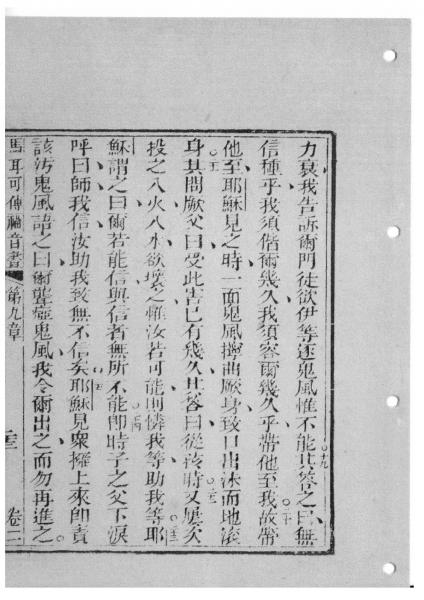 力衰我告訴爾門徒欲伊等逐鬼風惟不能其答之曰無
信種乎我須偕爾幾久我須容爾幾久乎帶他至我故帶
他至耶穌見之時一面鬼風擰曲厥身致口出沫而地滾
身其問厥父曰受此害已有幾久其答曰從時又屢矣
投之入火入水欲壞之惟汝若可能則憐我等助我等耶
穌謂之曰爾若能信與信者無所不能即時子之父下淚
呼曰師我信汝助我致無不信矣耶穌見眾擁上來即責
該污鬼風語之曰爾聾啞鬼風我令爾出之而勿再進之
馬耳可傳福音書 第九章 卷二